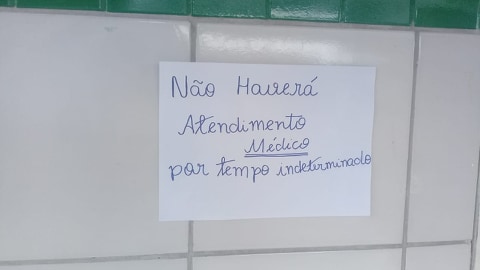 Não Haverá
Atendimento
Médico
por tempo indeterminado